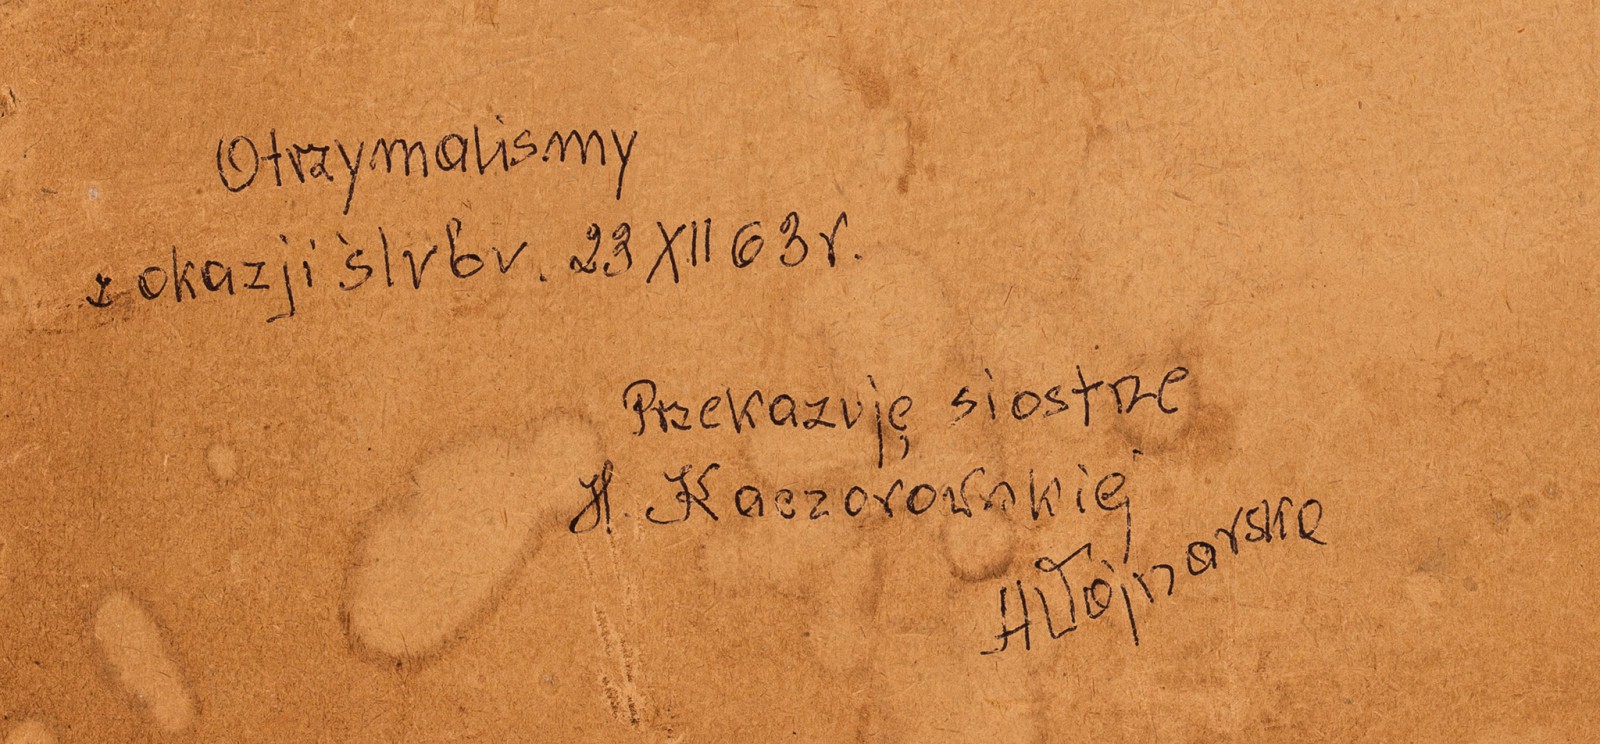 Otrzymalismy
z okazji ślubu. 23 XII 63 r.
Przekazuję siostrze
H. Kaczorowskiej
HWojnarska